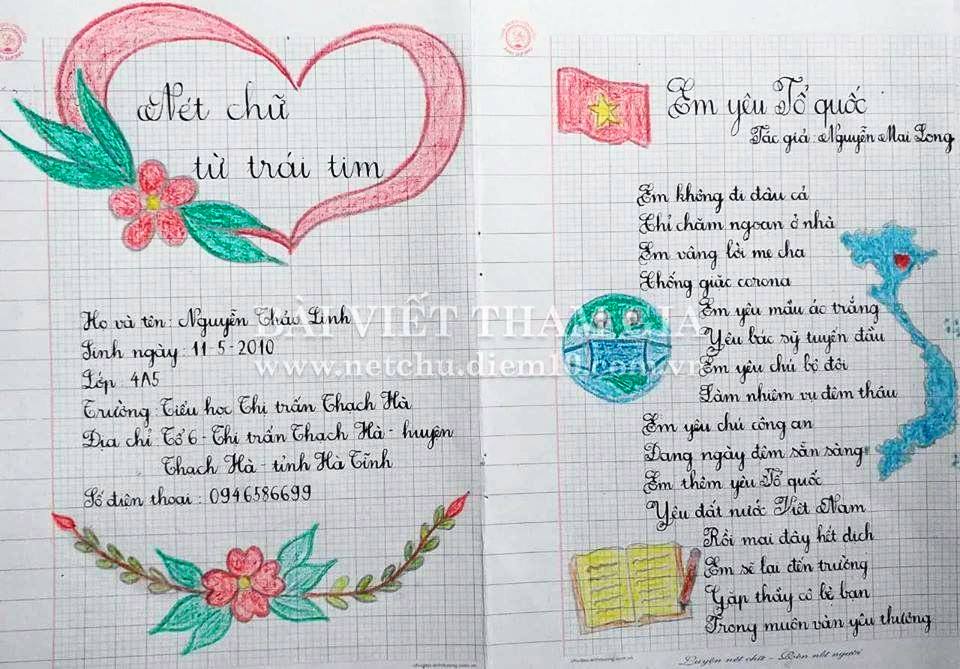 Nét chữ
từ trái tim
Họ và tên: Nguyễn Thảo Linh
Sinh ngày: 11-5-2010
Lớp 4A5
Trường: Tiểu học Thị trấn Thạch Hà
Địa chỉ Tổ 6 - Thị trấn Thạch Hà - huyện
Thạch Hà - tỉnh Hà Tĩnh
Số điện thoại: 0946586699
Em yêu Tổ quốc
Tác giả: Nguyễn Mai Long
Em không đi đâu cả
Chỉ chăm ngoan ở nhà
Em vâng lời mẹ cha
Chống giặc corona
Em yêu mầu áo trắng
Yêu bác sỹ tuyến đầu
Em yêu chú bộ đội
Làm nhiệm vụ đêm thâu
Em yêu chú công an
Đang ngày đêm sẵn sàng
Em thêm yêu Tổ quốc
Yêu đất nước Việt Nam
Rồi mai đây hết dịch
Em sẽ lại đến trường
Gặp thầy cô bè bạn
Trong muôn vàn yêu thương
BÀI VIẾT THAM GIA
www.netchu.diem10.com.vn
Luyện nét chữ - Rèn nết người